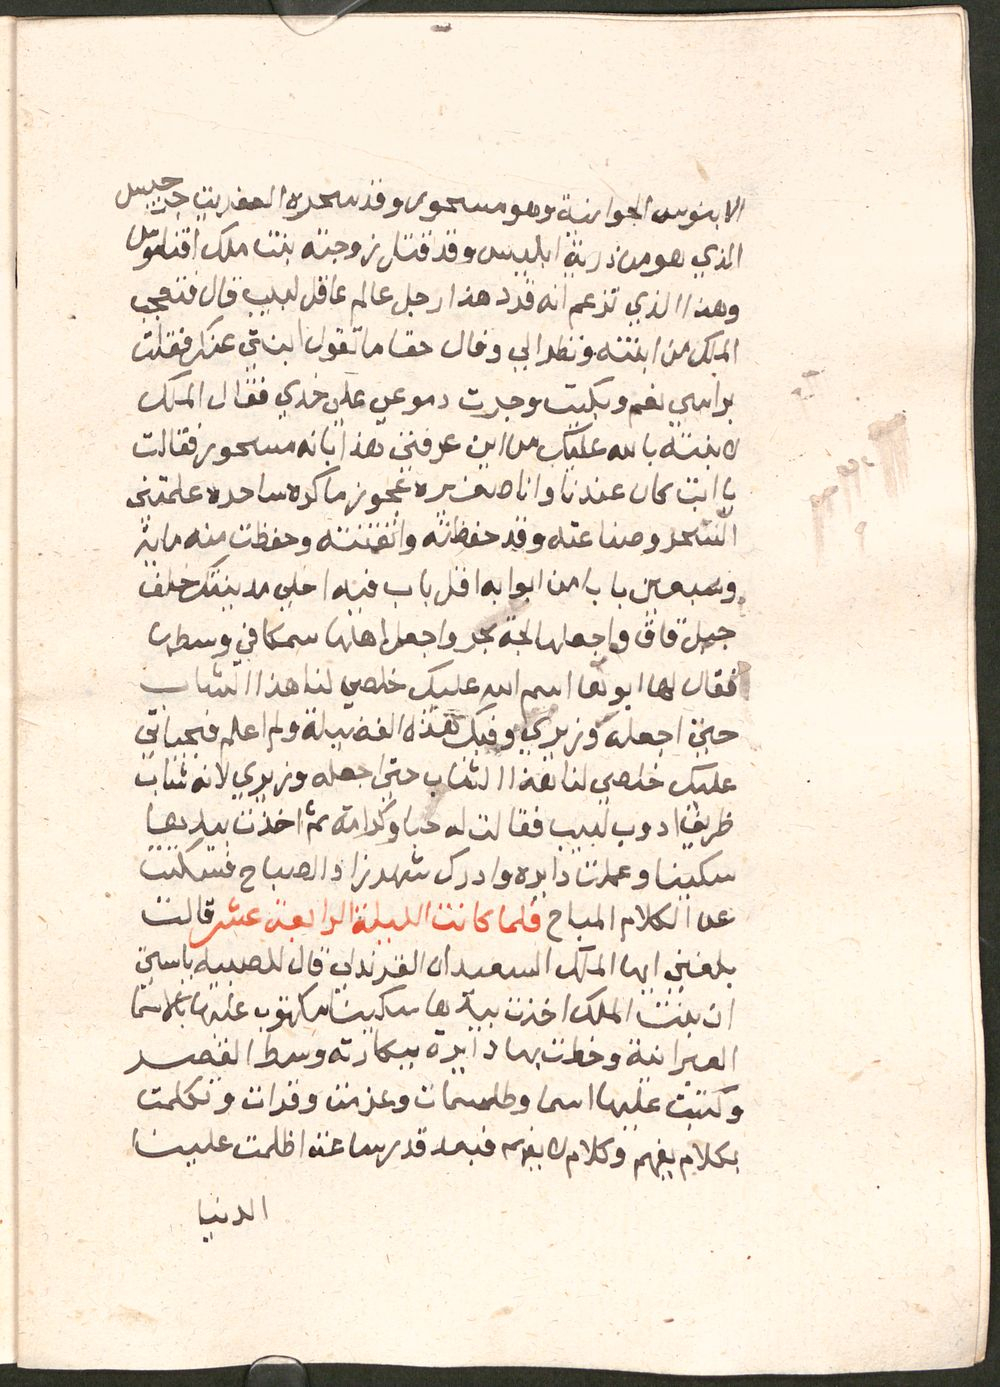 الابنوس الجوانية وهو مسحور وقد سحره العفريت جرجيس
الذي هو من ذرية ابليس وقد قتل زوجته بنت ملك اقناموس
وهذا الذي تزعم انه قرد هذا رجل عالم عاقل لبيب قال فتعجب
الملك من ابنته ونظر الي وقال حقا ما تقول ابنتي عنك فقلت
براسي نعم وبكيت وجرت دموعي على خدي فقال الملك
لابنته بالله عليك من اين عرفتي هذا بانه مسحور فقالت
يا ابت كان عندنا وانا صغيره عجوز ماكره ساحره علمتني
السحر وصناعته وقد حفظته واتقنته وحفظت منه ماية
وسبعين بابا من ابوابه اقل باب فيه اخلي مدينتك خلف
جبل قاف واجعلها لجة بحر واجعل اهلها سمكا في وسطها
فقال لها ابوها اسم الله عليك خلصي لنا هذا الشاب
حتي اجعله وزيري وفيك هذه الفضيلة ولم اعلم فبحياتي
عليك خلصي لنا هذا الشاب حتي اجعله وزيري لانه شاب
ظريف ادوب لبيب فقالت له حبا وكرامة ثم اخذت بيدها
سكينا وعملت دايره وادرك شهرزاد الصباح فسكتت
عن الكلام المباح فلما كانت الليلة الرابعة عشر قالت
بلغني ايها الملك السعيد ان القرندلي قال للصبيه يا ستي
ان بنت الملك اخذت بيدها سكينا مكتوب عليها بالاسما
العبرانية وخطت بها دايرة ببيكارته وسط القصر
وكتبت عليها اسما وطلسمات وعزمت وقرات وتكلمت
بكلام يفهم وكلام لا يفهم فبعد قدر ساعة اظلمت علينا
الدنيا